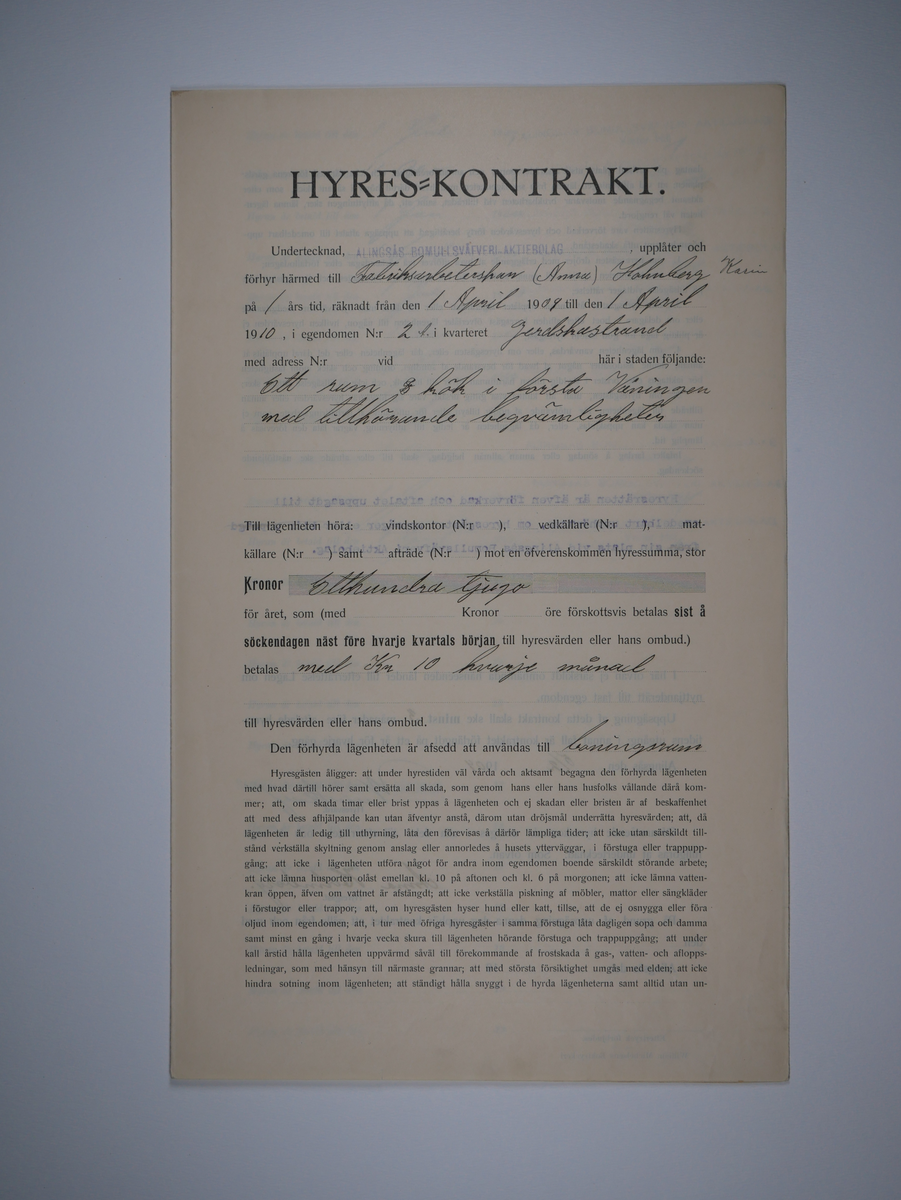 HYRES-KONTRAKT.
Undertecknad, ALINGSÅS BOMULLSVÄFVERI AKTIEBOLAG, upplåter och
förhyr härmed till Fabriksarbeterskan (Anna) Holmberg Karin
på 1 års tid, räknadt från den 1 April 1909 till den 1 April
1910, i egendomen N:r 2 i kvarteret
med adress N:r vid här i staden följande:
Ett rum & kök i första Våningen
med tillhörande beqvämligheter
Till lägenheten höra: vindskontor (N:r ), vedkällare (N:r ), mat-
källare (N:r ) samt afträde (N:r ) mot en öfverenskommen hyressumma, stor
Kronor Etthundra tjugo
för året, som (med Kronor öre förskottsvis betalas sist å
söckendagen näst före hvarje kvartals början, till hyresvärden eller hans ombud.)
betalas med Kr 10 hvarje månad
till hyresvärden eller hans ombud.
Den förhyrda lägenheten är afsedd att användas till boningsrum
Hyresgästen åligger: att under hyrestiden väl vårda och aktsamt begagna den förhyrda lägenheten
med hvad därtill hörer samt ersätta all skada, som genom hans eller hans husfolks vållande därå kom-
mer; att, om skada timar eller brist yppas å lägenheten och ej skadan eller bristen är af beskaffenhet
att med dess afhjälpande kan utan äfventyr anstå, därom utan dröjsmål underrätta hyresvärden; att, då
lägenheten är ledig till uthyrning, låta den förevisas å därför lämpliga tider; att icke utan särskildt till-
stånd verkställa skyltning genom anslag eller annorledes å husets ytterväggar, i förstuga eller trappupp-
gång; att icke i lägenheten utföra något för andra inom egendomen boende särskildt störande arbete;
att icke lämna husporten olåst emellan kl. 10 på aftonen och kl. 6 på morgonen; att icke lämna vatten-
kran öppen, äfven om vattnet är afstängdt; att icke verkställa piskning af möbler, mattor eller sängkläder
i förstugor eller trappor; att, om hyresgästen hyser hund eller katt, tillse, att de ej osnygga eller föra
oljud inom egendomen; att, i tur med öfriga hyresgäster i samma förstuga låta dagligen sopa och damma
samt minst en gång i hvarje vecka skura till lägenheten hörande förstuga och trappuppgång; att under
kall årstid hålla lägenheten uppvärmd såväl till förekommande af frostskada å gas-, vatten- och aflopps-
ledningar, som med hänsyn till närmaste grannar; att med största försiktighet umgås med elden; att icke
hindra sotning inom lägenheten; att ständigt hålla snyggt i de hyrda lägenheterna samt alltid utan un-